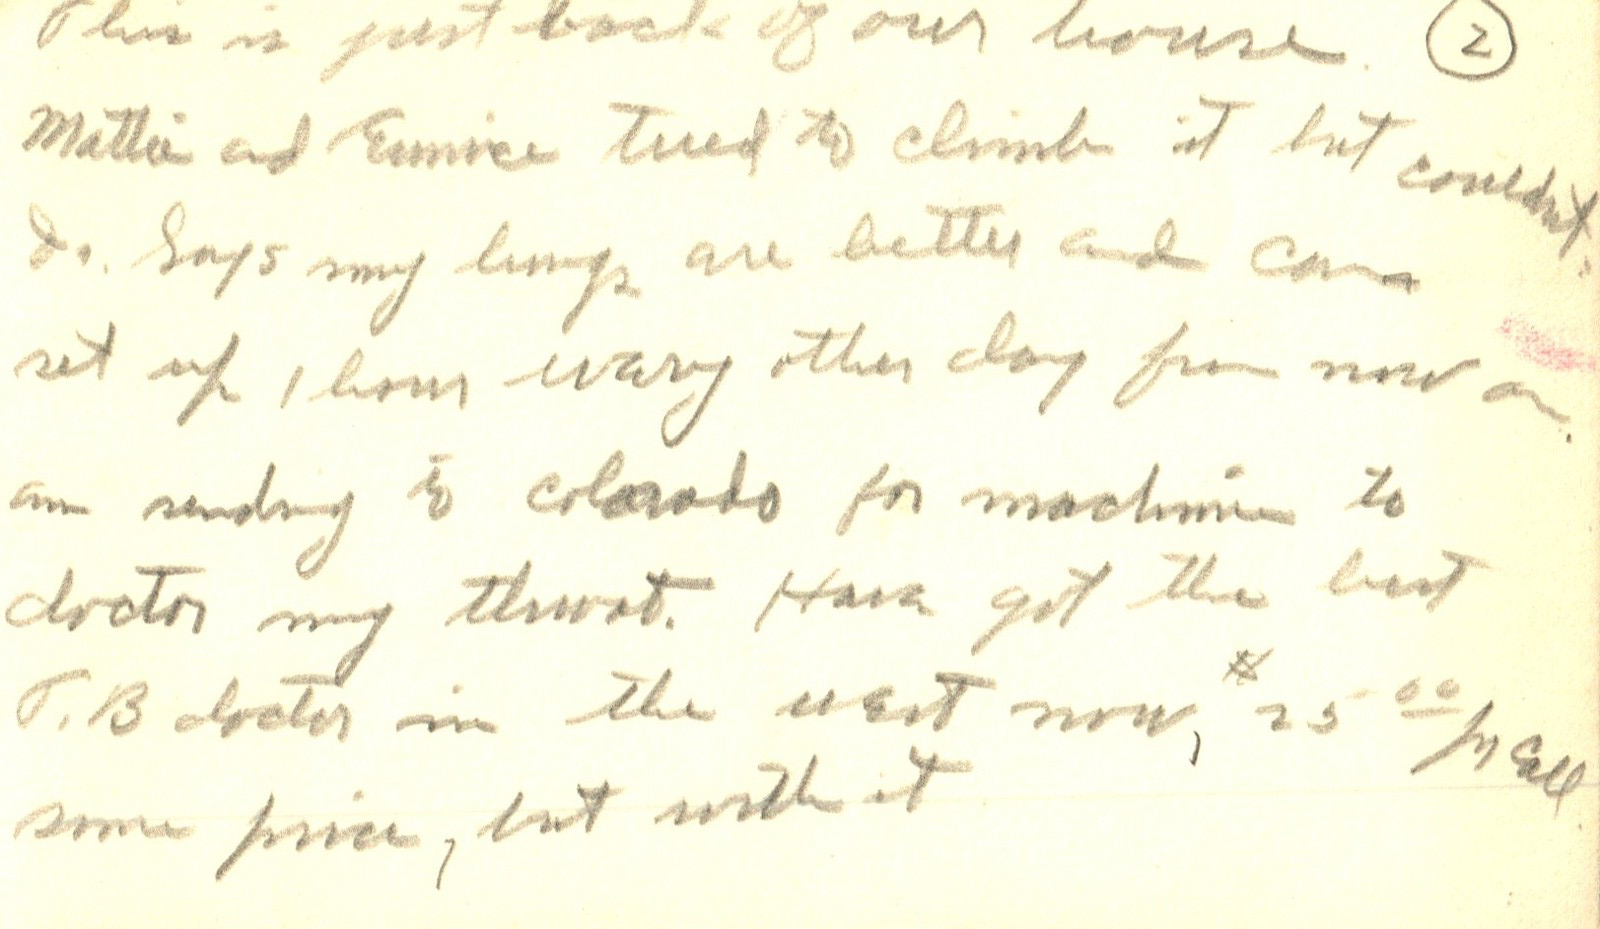 This is just back of our house. 2
Mattie and Eunice tried to climb it but couldnt.
Dr. Says my lungs are better and can
set up 1 hour every other day from now on.
am sending to colorado for machine to
doctor my throat. Have got the best
T.B doctor in the west now, $25 00 pr call
some price, but worth it